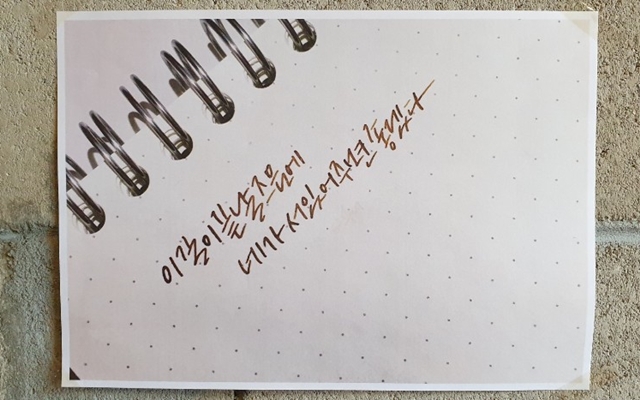 이 길이 끝날 즈음에
네가 서 있어준다면 좋겠다